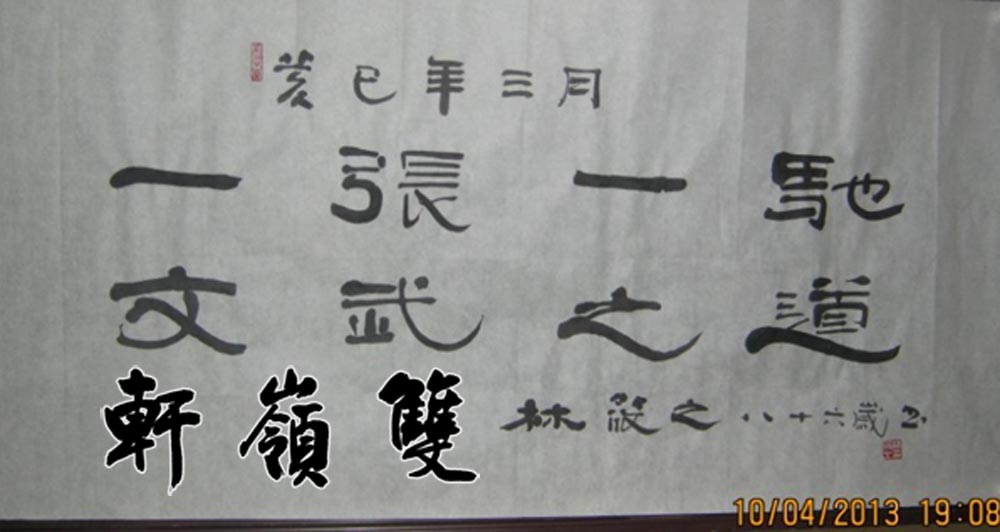 癸巳年三月
一張一馳
文武之道
林筱之八十六歲书
雙嶺軒
10/04/2013 19:08